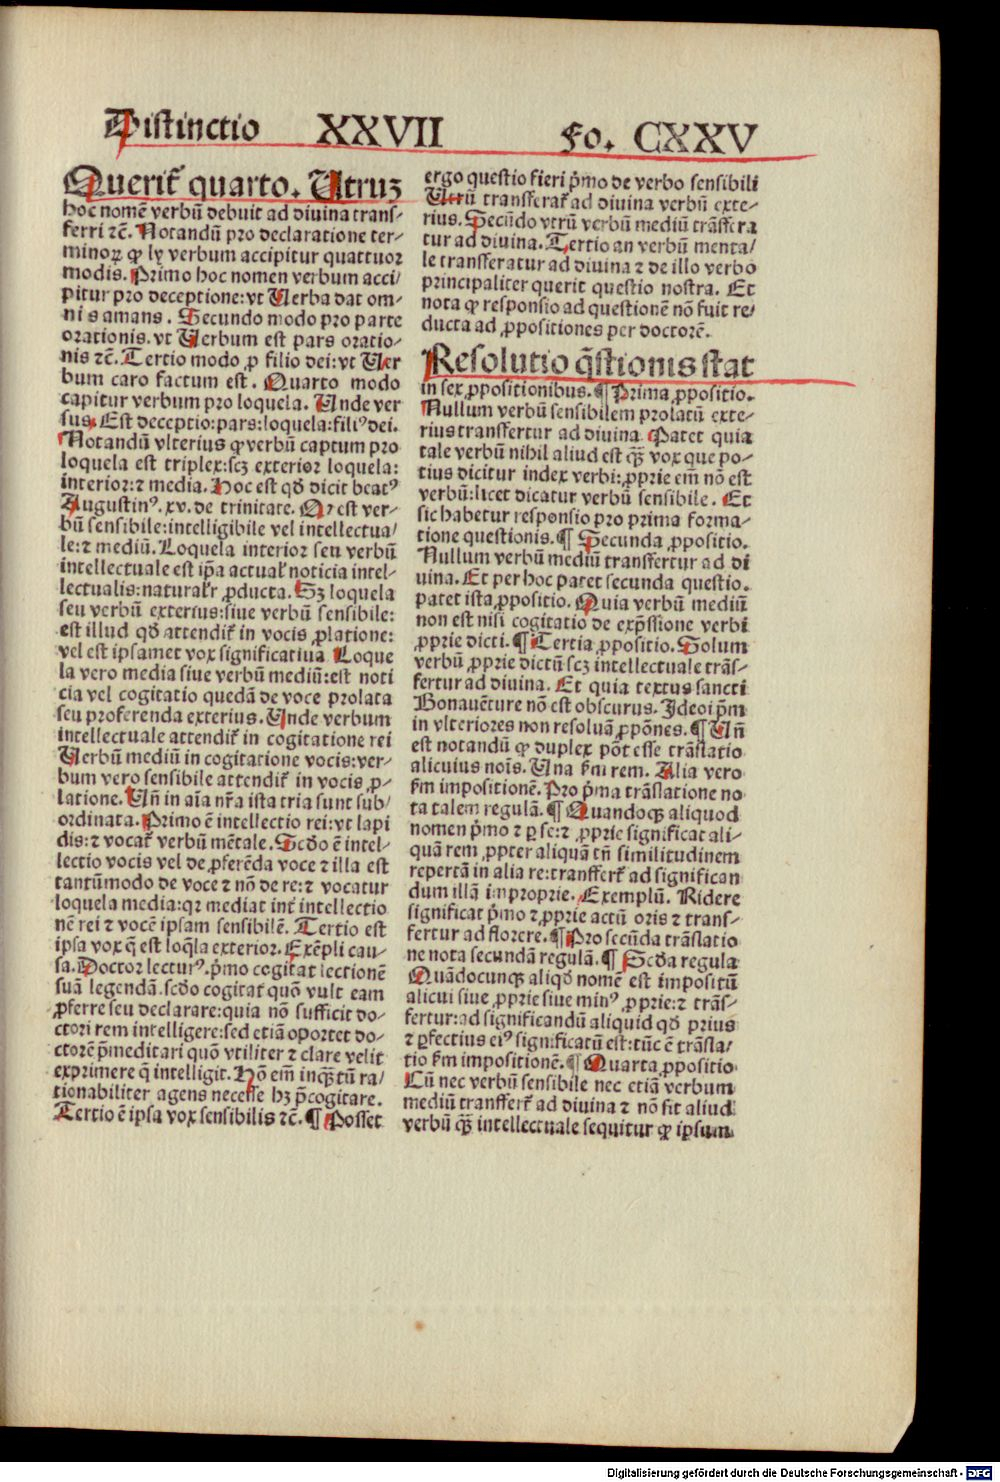 Distinctio XXVII Fo. CXXV
Querit̃ quarto. Utruꝫ
hoc nomẽ verbũ debuit ad diuina trans⸗
ferri ⁊c̃. Notandũ pro declaratione ter⸗
minoꝝ ꝙ ly verbum accipitur quattuor
modis. Primo hoc nomen verbum acci⸗
pitur pro deceptione: vt Verba dat om⸗
nis amans. Secundo modo pro parte
orationis. vt Verbum est pars oratio⸗
nis ⁊c̃. Tertio modo ꝓ filio dei: vt Ver
bum caro factum est. Quarto modo
capitur verbum pro loquela. Unde ver
sus. Est deceptio: pars: loquela: filiꝰ dei.
Notandũ vlterius ꝙ verbũ captum pro
loquela est triplex: scꝫ exterior loquela:
interior: ⁊ media. Hoc est qđ dicit beatꝰ
Augustinꝰ. xv. de trinitate. Qꝛ est ver⸗
bũ sensibile: intelligibile vel intellectua⸗
le: ⁊ mediũ. Loquela interior seu verbũ
intellectuale est ip̃a actual̃ noticia intel⸗
lectualis: natural̃r ꝓducta. Sꝫ loquela
seu verbũ exterius: siue verbũ sensibile:
est illud qđ attendit̃ in vocis ꝓlatione:
vel est ipsamet vox significatiua Loque
la vero media siue verbũ mediũ: est noti
cia vel cogitatio quedã de voce prolata
seu proferenda exterius. Unde verbum
intellectuale attendit̃ in cogitatione rei
Verbũ mediũ in cogitatione vocis: ver⸗
bum vero sensibile attendit̃ in vocis ꝓ⸗
latione. Uñ in aĩa nr̃a ista tria sunt sub⸗
ordinata. Primo ẽ intellectio rei: vt lapi
dis: ⁊ vocat̃ verbũ mẽtale. Scđo ẽ intel⸗
lectio vocis vel de ꝓferẽda voce ⁊ illa est
tantũmodo de voce ⁊ nõ de re: ⁊ vocatur
loquela media: qꝛ mediat int̃ intellectio
nẽ rei ⁊ vocẽ ipsam sensibilẽ. Tertio est
ipsa vox q̃ est loq̃la exterior. Exẽpli cau⸗
sa. Doctor lecturꝰ. p̃mo cogitat lectionẽ
suã legendã. scđo cogitat quõ vult eam
ꝓferre seu declarare: quia nõ sufficit do⸗
ctori rem intelligere: sed etiã oportet do⸗
ctorẽ p̃meditari quõ vtiliter ⁊ clare velit
exprimere q̃ intelligit. Nõ em̃ inqꝫtũ ra⸗
tionabiliter agens necesse hꝫ p̃cogitare.
Tertio ẽ ipsa vox sensibilis ⁊c̃. ¶ Posset
ergo questio fieri p̃mo de verbo sensibili
Utrũ transferat̃ ad diuina verbũ exte⸗
rius. Secũdo vtrũ verbũ mediũ trãsfera
tur ad diuina. Tertio an verbũ menta⸗
le transferatur ad diuina ⁊ de illo verbo
principaliter querit questio nostra. Et
nota ꝙ responsio ad questionẽ nõ fuit re⸗
ducta ad ꝓpositiones per doctorẽ.
Resolutio q̃stionis stat
in sex ꝓpositionibus. ¶ Prima ꝓpositio.
Nullum verbũ sensibilem prolatũ exte⸗
rius transfertur ad diuina Patet quia
tale verbũ nihil aliud est qꝫ vox que po⸗
tius dicitur index verbi: ꝓprie em̃ nõ est
verbũ: licet dicatur verbũ sensibile. Et
sic habetur responsio pro prima forma⸗
tione questionis. ¶ Secunda ꝓpositio.
Nullum verbũ mediũ transfertur ad di
uina. Et per hoc patet secunda questio.
patet ista ꝓpositio. Quia verbũ mediũ
non est nisi cogitatio de exp̃ssione verbi
ꝓprie dicti. ¶ Tertia ꝓpositio. Solum
verbũ ꝓprie dictũ scꝫ intellectuale trãs⸗
fertur ad diuina. Et quia textus sancti
Bonauẽture nõ est obscurus. Ideo ip̃m
in vlteriores non resoluã ꝓpõnes. ¶ Uñ
est notandũ ꝙ duplex põt esse trãslatio
alicuius noĩs. Una ẜm rem. Alia vero
ẜm impositionẽ. Pro p̃ma trãslatione no
ta talem regulã. ¶ Quandocqꝫ aliquod
nomen p̃mo ⁊ ꝑ se: ⁊ ꝓprie significat ali⸗
quã rem ꝓpter aliquã tñ similitudinem
repertã in alia re: transfert̃ ad significan
dum illã improprie. Exemplũ. Ridere
significat p̃mo ⁊ ꝓprie actũ oris ⁊ trans⸗
fertur ad florere. ¶ Pro secũda trãslatio
ne nota secundã regulã. ¶ Scđa regula
Quãdocunqꝫ aliqđ nomẽ est impositũ
alicui siue ꝓprie siue minꝰ ꝓprie: ⁊ trãs⸗
fertur: ad significandũ aliquid qđ prius
⁊ ꝑfectius eiꝰ significatũ est: tũc ẽ trãsla⸗
tio ẜm impositionẽ. ¶ Quarta ꝓpositio
Cũ nec verbũ sensibile nec etiã verbum
mediũ transfert̃ ad diuina ⁊ nõ sit aliud
verbũ qꝫ intellectuale sequitur ꝙ ipsum
Digitalisierung gefördert durch die Deutsche Forschungsgemeinschaft - DFG